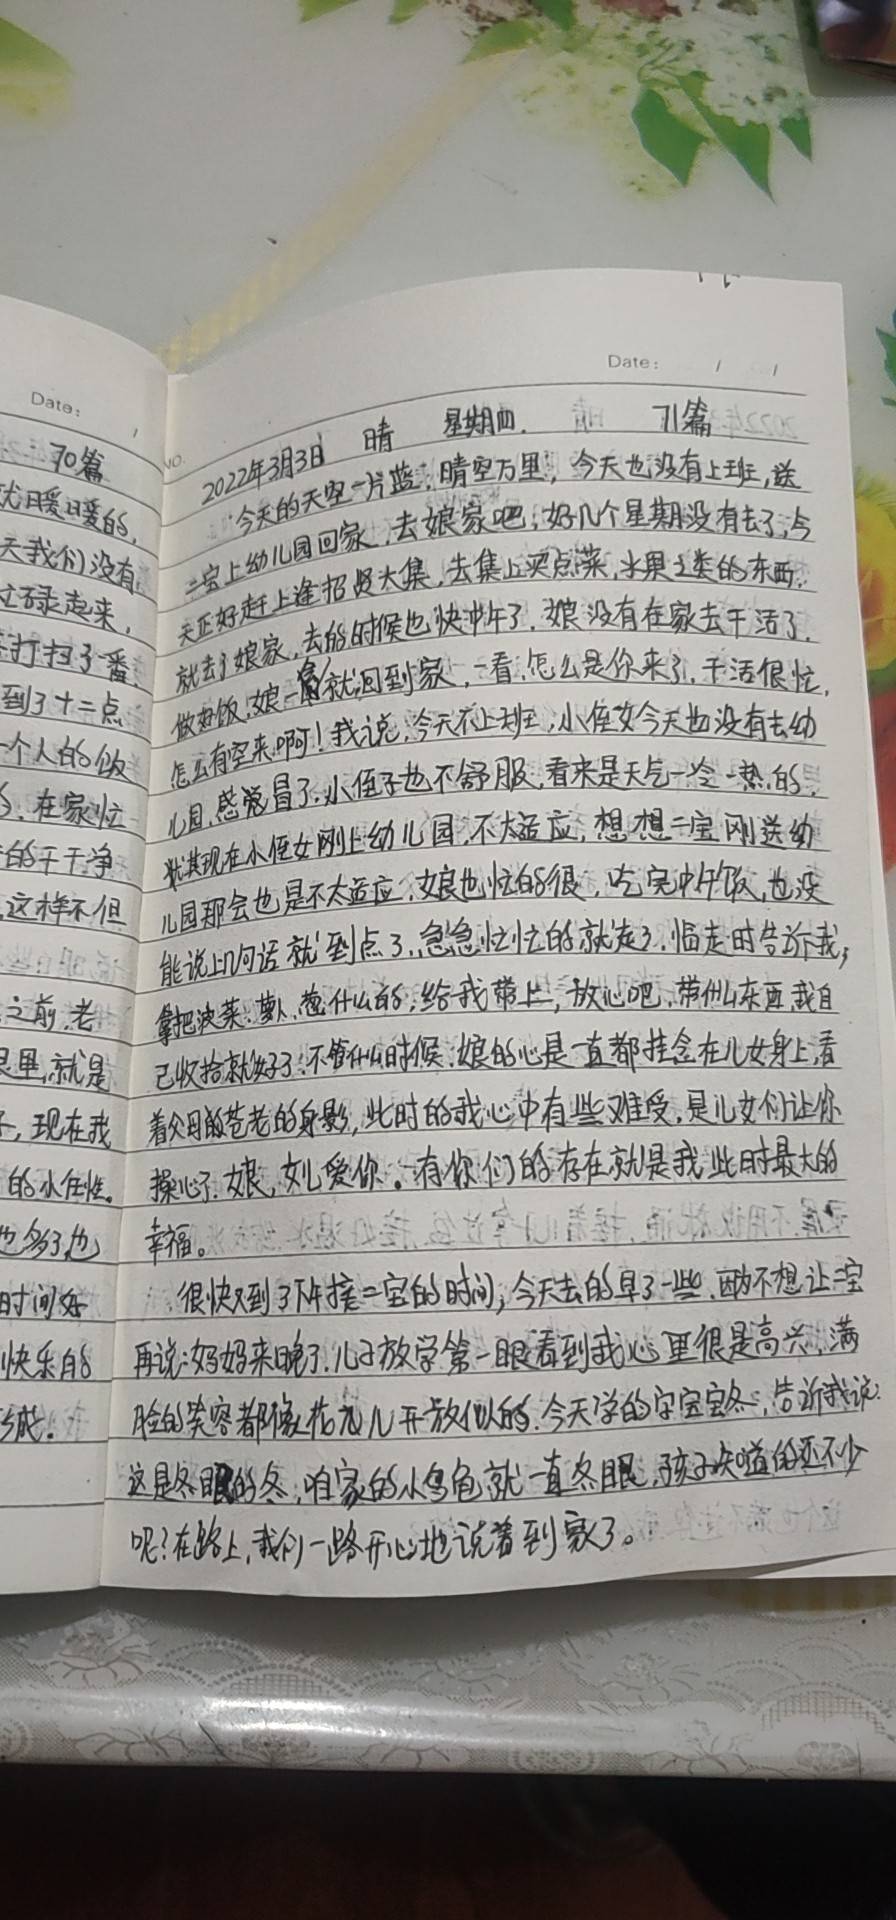 Date：
70篇
就暖暖的，
天我们没有
忙碌起来，
打扫了一番，
到了十二点
一个人的饭
在家忙
的干干净
这样不但
之前，老
就是
现在我
的小任性。
也多了，也
时间好
快乐的
成。
Date： / /
NO.
2022年3月3日 晴 星期四. 71篇
今天的天空一片蓝，晴空万里，今天也没有上班，送
二宝上幼儿园回家，去娘家吧，好几个星期没有去了，今
天正好赶上逢招贤大集，去集上买点菜，水果之类的东西，
就去了娘家，去的时候也快中午了，娘没有在家去干活了，
做好饭，娘一会就回到家，一看，怎么是你来了，干活很忙，
怎么有空来啊！我说，今天不上班，小侄女今天也没有去幼
儿园，感觉冒了，小侄子也不舒服，看来是天气一冷一热的，
尤其现在小侄女刚上幼儿园，不太适应，想想二宝刚送幼
儿园那会也是不太适应，娘也忙的很，吃完中午饭，也没
能说上几句话就到点了，急急忙忙的就走了，临走时告诉我，
拿把波菜、萝卜、葱什么的，给我带上，放心吧，带什么东西我自
己收拾就好了，不管什么时候，娘的心是一直都挂念在儿女身上，看
着父母的苍老的身影，此时的我心中有些难受，是儿女们让你
操心了，娘，女儿爱你。有你们的存在就是我此时最大的
幸福。
很快又到了下午接二宝的时间，今天去的早了一些，因为不想让二宝
再说：妈妈来晚了，儿子放学第一眼看到我心里很是高兴，满
脸的笑容都像花儿开放似的，今天学的字宝宝冬，告诉我说：
这是冬眠的冬，咱家的小乌龟就一直冬眠，孩子知道的还不少
呢？在路上，我们一路开心地说着到家了。